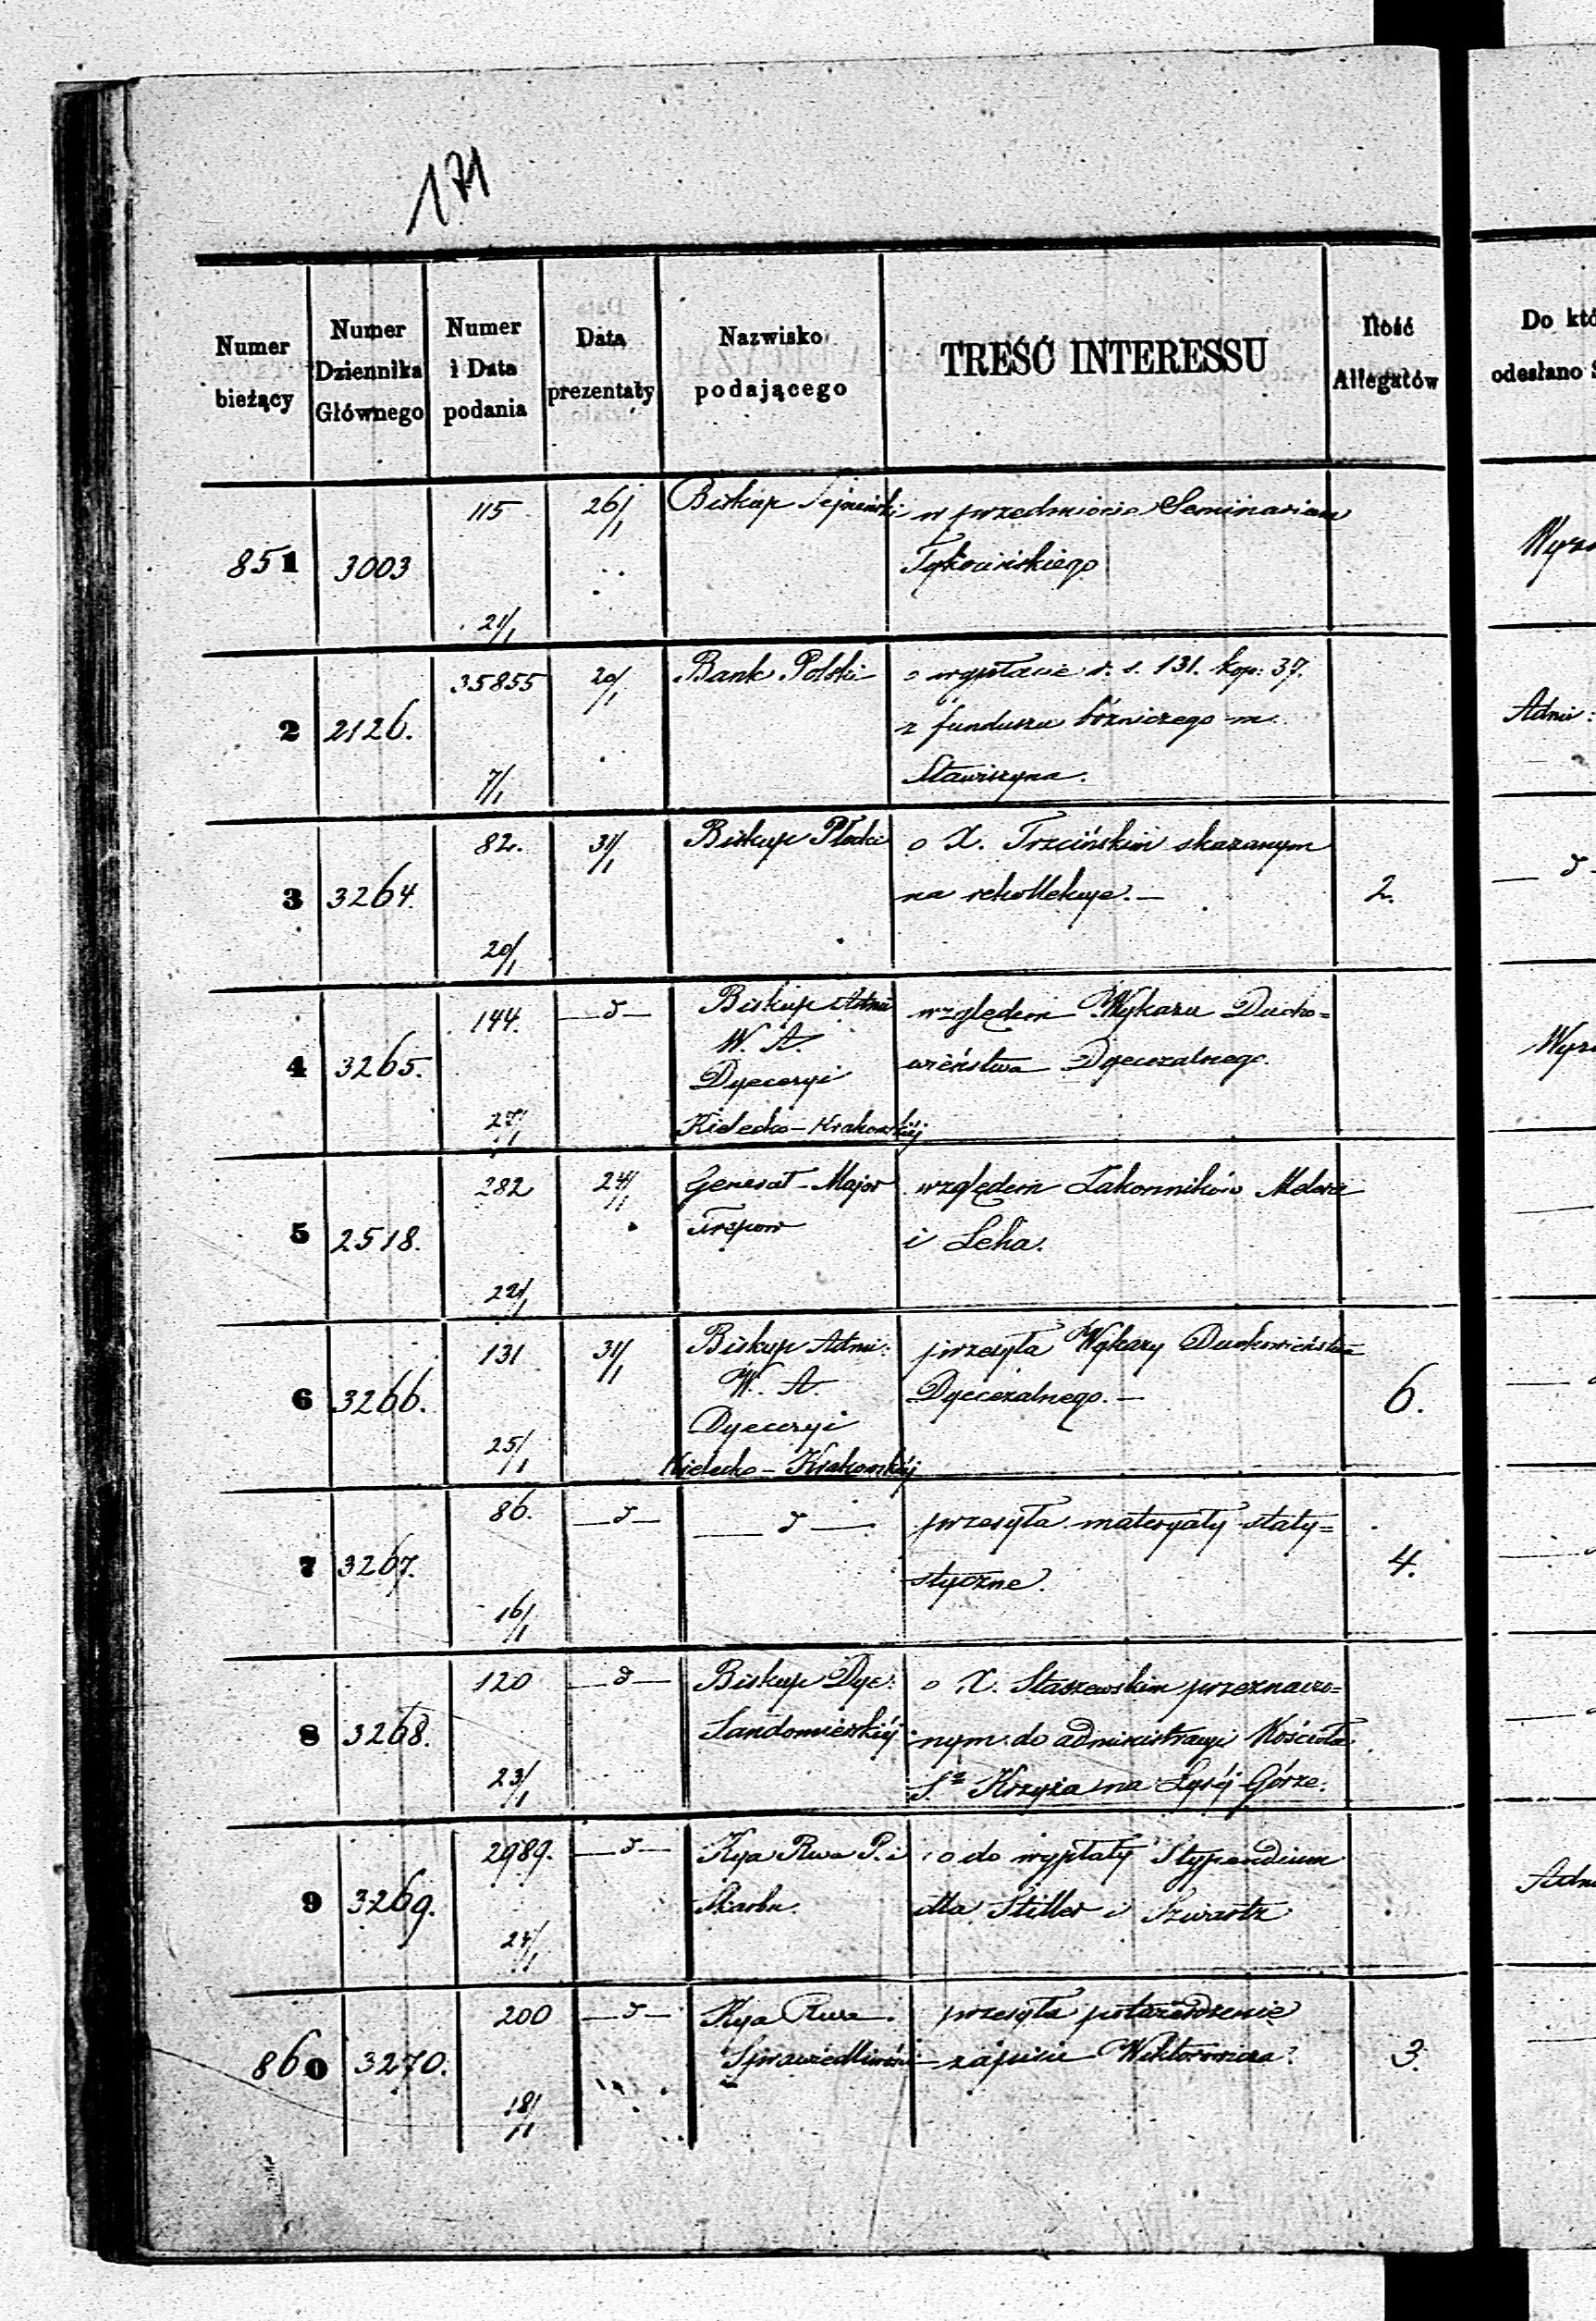 171
Numer bieżący
Numer Dziennika Głównego
Numer i Data podania
Data prezentaty
Nazwisko podającego
TREŚĆ INTERESSU
Ilość Allegatów
Do któ
odesłano
851 3003 115 21/1 26/1 Biskup Sejneński
w przedmiocie Seminarium
Tykocińskiego
2 2126. 35855 7/1 20/1 Bank Polski
o wypłacie r. s. 131. kop: 37.
z funduszu bożniczego m.
Stawiszyna.
Adm:
3 3264. 82. 20/1 31/1 Biskup Płocki
o X. Trzcińskim skazanym
na rekollekcye. — 2.
— d
4 3265. 144. 27/1 — d —
Biskup Adm:
W. A.
Dyecezyi
Kielecko-Krakowskiéj
względem Wykazu Ducho=
wieństwa Dyecezalnego.
5 2518. 282 22/1 24/1
Generał-Major
Trepow
względem Zakonników
i Leha.
6 3266. 131 25/1 31/1
Biskup Adm:
W. A.
Dyecezyi
Kielecko-Krakowskiéj
przesyła Wykazy Duchowieństwa
Dyecezalnego. — 6.
7 3267. 86. 16/1 — d — — d —
przesyła materyały staty=
styczne. 4.
8 3268. 120 23/1 — d —
Biskup Dye:
Sandomierskiéj
o X. Staszewskim przeznaczo=
nym do administracyi Kościoła
Sgo Krzyża na Łyséj Górze.
9 3269. 2989. — d —
Kya Rwa P. i
Skarbu.
o do wypłaty Stypendium
dla Stiller i Szwartz
860 3270. 200 18/1 — d —
Kya Rwa
Sprawiedliwości
przesyła potwierdzenie
zapisu Wiktorowicza. 3.